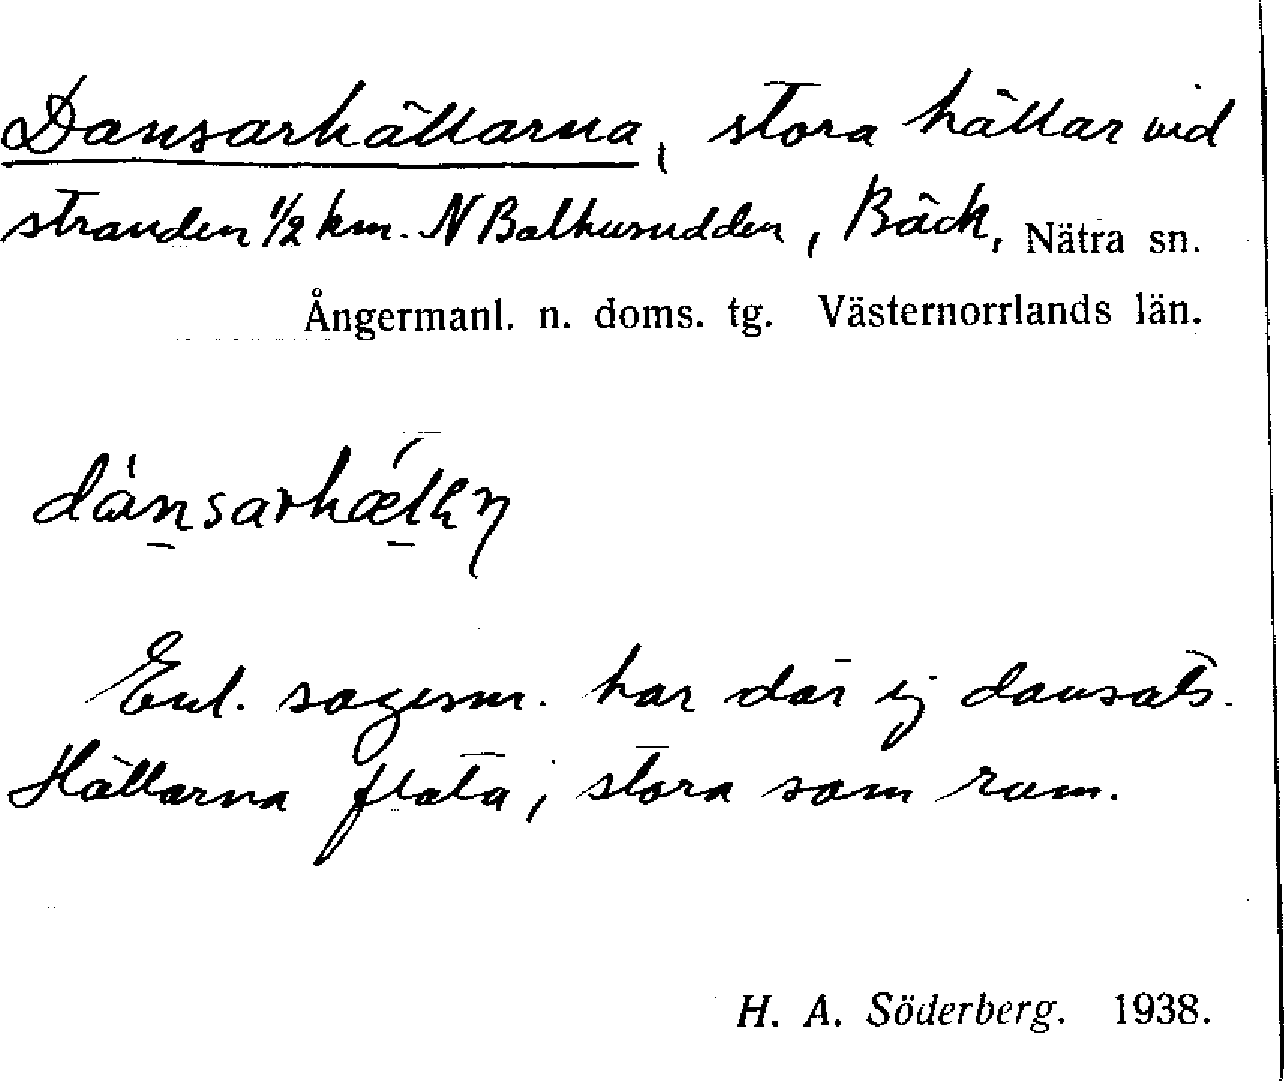 Dansarhällarna, stora hällar vid
stranden 1/2 km. N Balhusudden, Bäck, Nätra sn.
Ångermanl. n. doms. tg. Västernorrlands län.
Enl. sagesm. har där ej dansats.
Hällarna flata, stora som rum.
H. A. Söderberg. 1938.